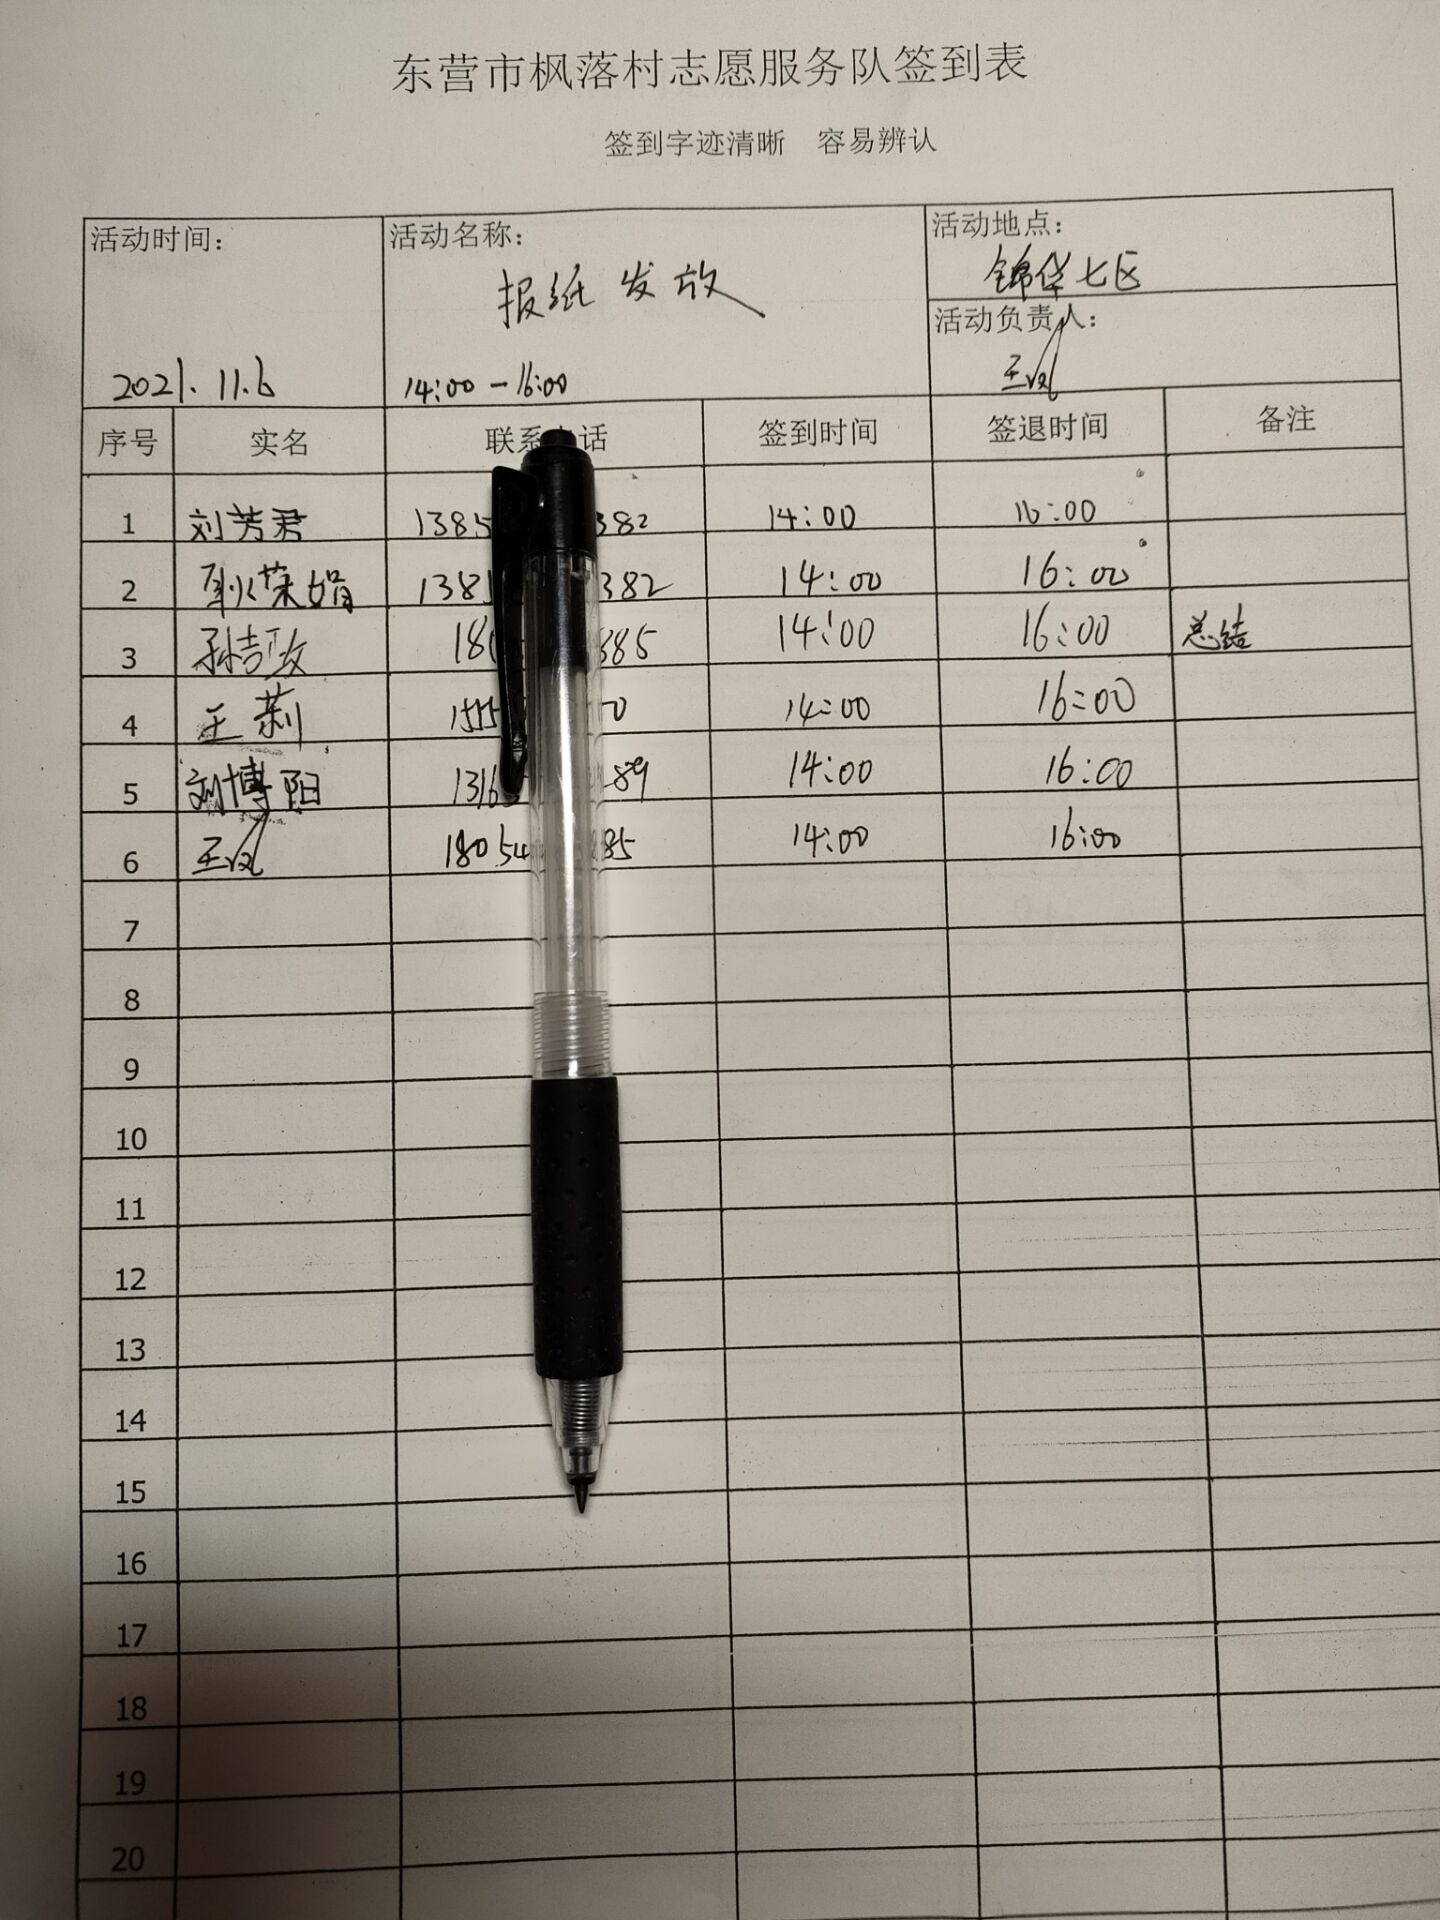 东营市枫落村志愿服务队签到表
签到字迹清晰 容易辨认
活动时间: 活动名称: 活动地点:
报纸发放 锦华七区
活动负责人:
2021.11.6 14:00-16:00
序号 实名 联系 话 签到时间 签退时间 备注
1 刘芳君 1385 382 14:00 16:00
2 荣娟 138 382 14:00 16:00
3 孙吉政 18 385 14:00 16:00 总结
4 王莉 155 0 14:00 16:00
5 刘博阳 1316 89 14:00 16:00
6 18054 85 14:00 16:00
7
8
9
10
11
12
13
14
15
16
17
18
19
20